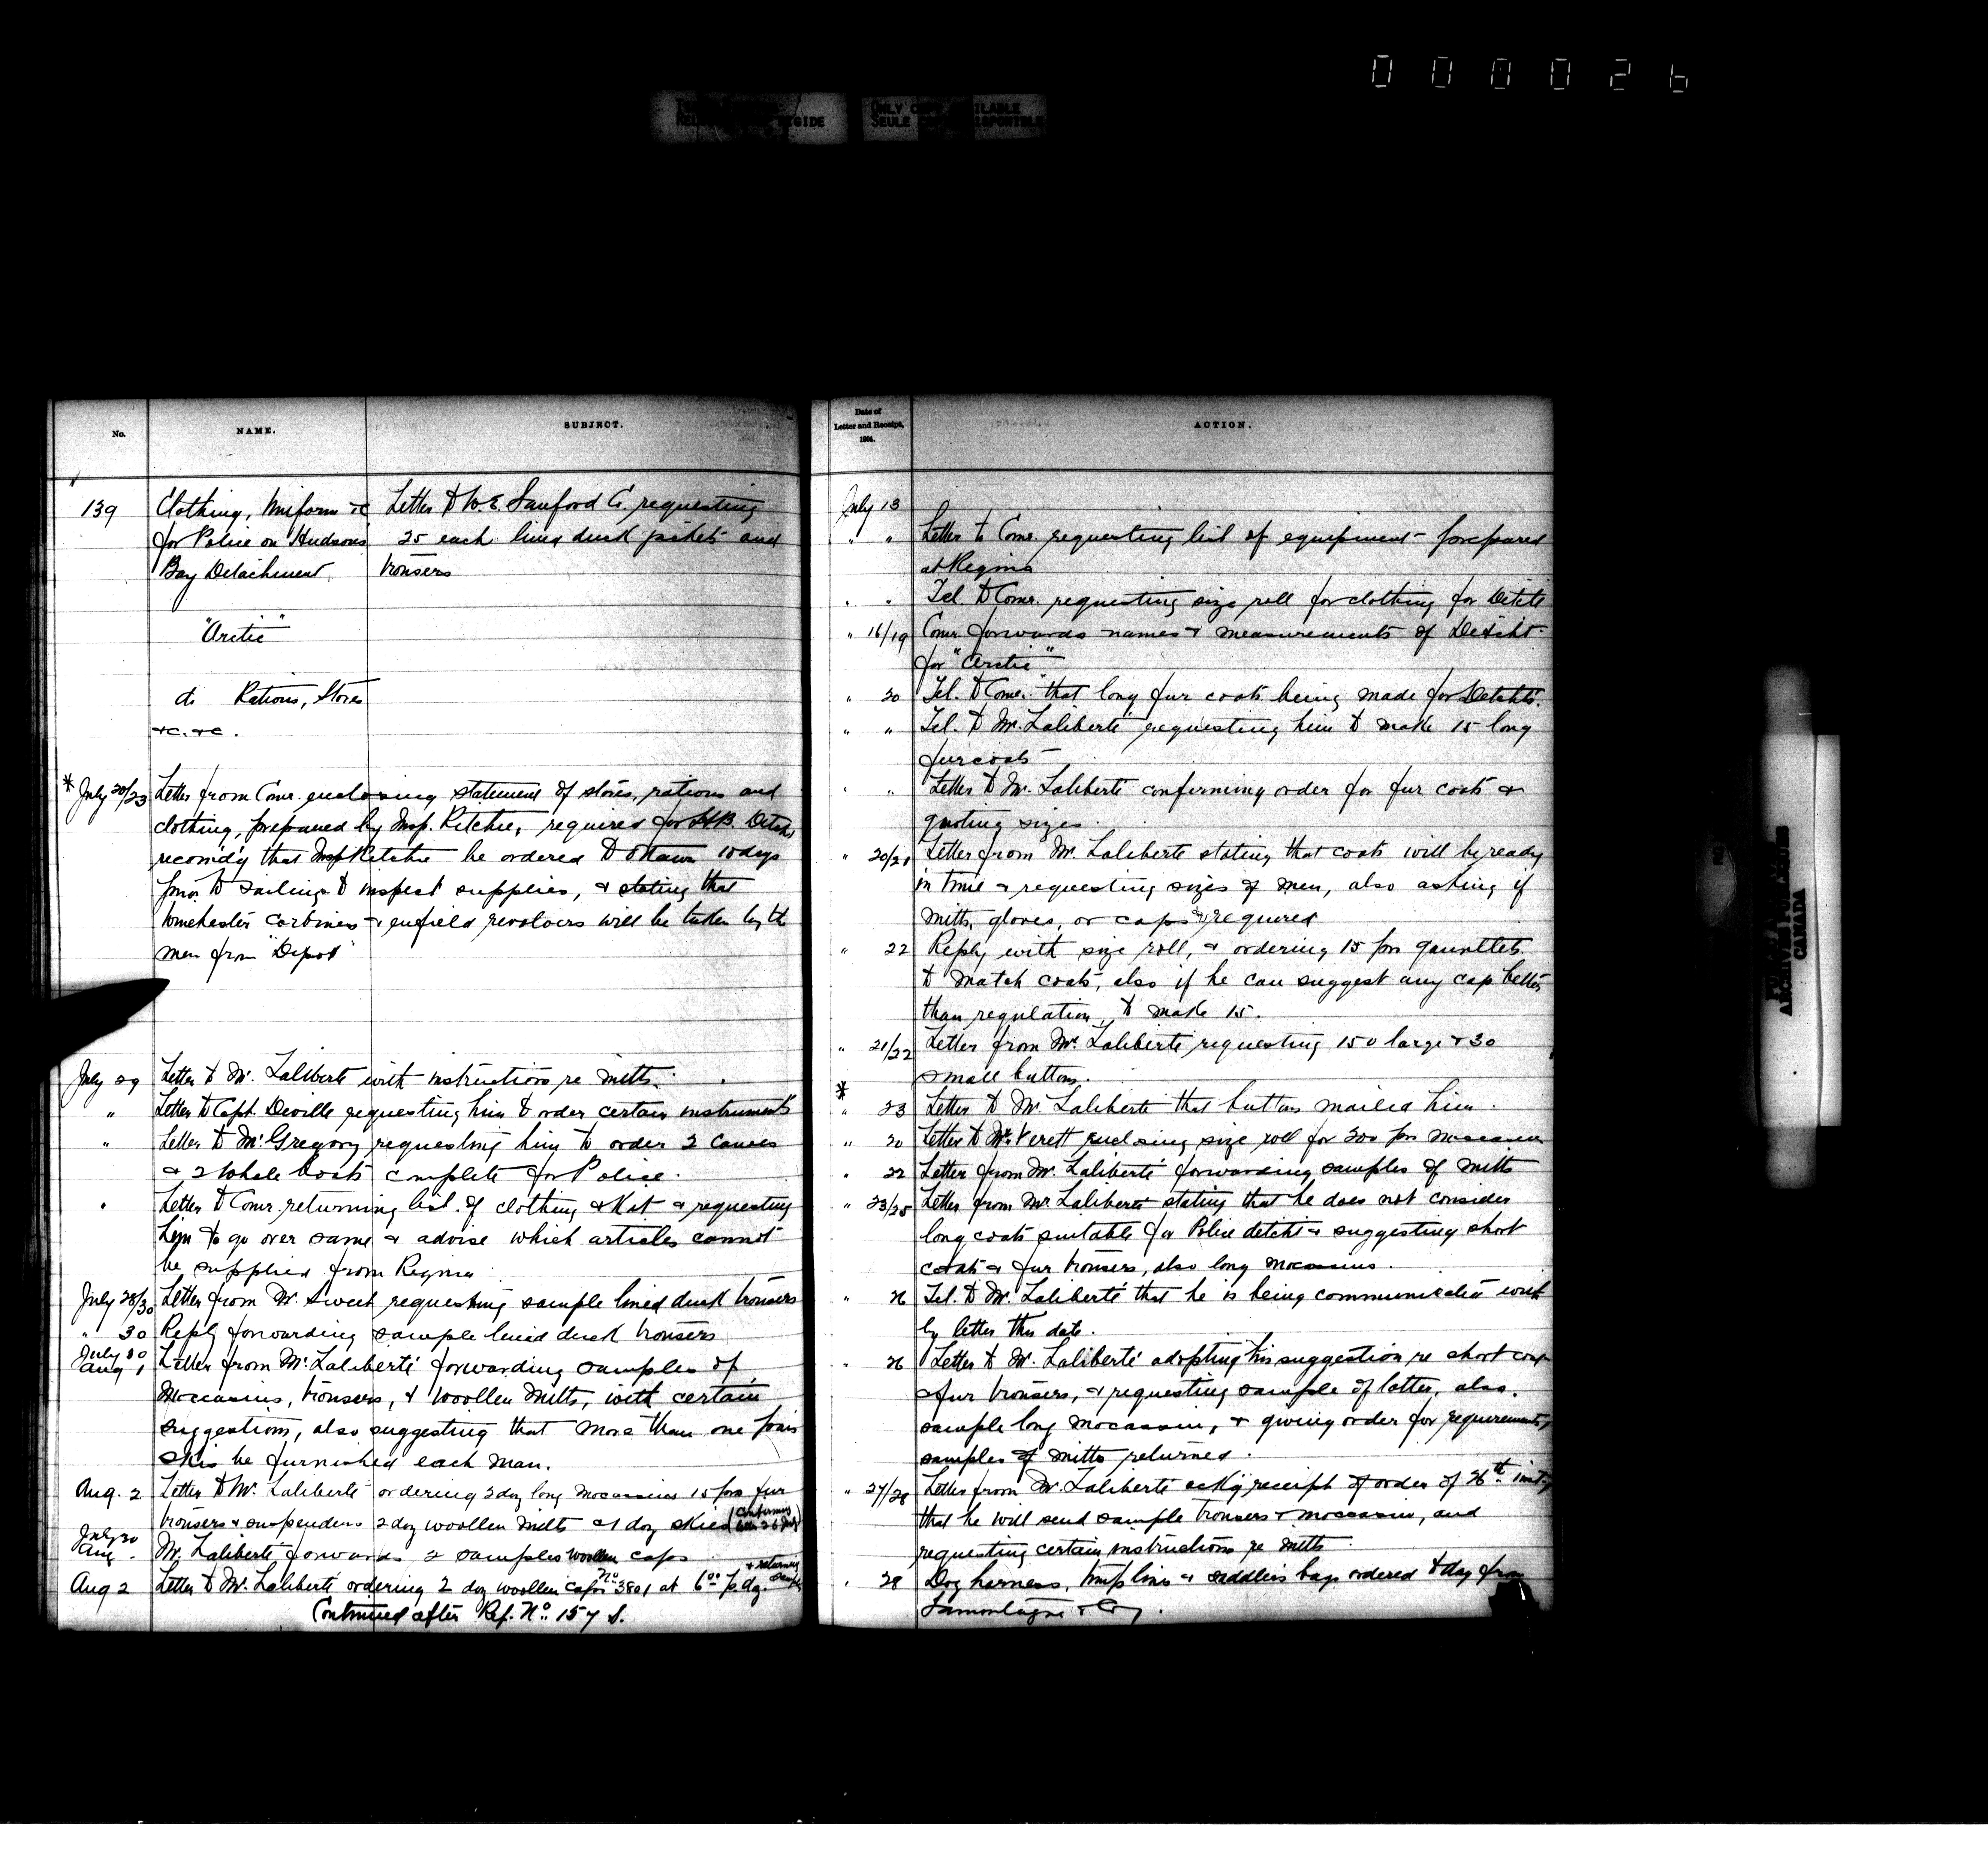 0 0 0 0 2 6
ONLY COPY AVAILABLE
SEULE COPIE DISPONIBLE
No.
NAME.
SUBJECT.
139
Clothing, Uniform &c
for Police on Hudsons
Bay Detachment
"Arctic"
do Rations, Stores
&c. &c.
Letter to W.E. Sanford Co. requesting
25 each lined duck jackets and
trousers
* July 20/23 Letter from Comr. enclosing statement of stores, rations and
clothing, prepared by Insp. Ritchie, required for H.B. Detcht
recom'd'g that Insp Ritchie be ordered to Ottawa 10 days
prior to sailing to inspect supplies, & stating that
Winchester carbines & enfield revolvers will be taken by the
men from "Depot"
July 29 Letter to Mr. Laliberté with instructions re mitts.
" Letter to Capt. Deville requesting him to order certain instruments
" Letter to Mr Gregory requesting him to order 2 canoes
& 2 Whale boats complete for Police.
" Letter to Comr. returning list of clothing & kit & requesting
him to go over same & advise which articles cannot
be supplied from Regina
July 28/30 Letter from Mr. Sweet requesting sample lined duck trousers
" 30 Reply forwarding sample lined duck trousers
July 30
Aug 1 Letter from Mr. Laliberté forwarding samples of
Moccasins, trousers, & woollen mitts, with certain
suggestions, also suggesting that more than one pair
skis be furnished each man.
Aug. 2 Letter to Mr. Laliberté ordering 3 doz long moccassins 15 prs fur
trousers & suspenders 2 doz woollen mitts & 1 doz skies (Confirming
letter 26 July)
July 30
Aug. Mr. Laliberté forwards 2 samples woollen caps
Aug 2 Letter to Mr. Laliberté ordering 2 doz woollen caps No 3801 at 6.00 p. dz. & returning sample
Continued after Ref. No. 157 S.
Date of
Letter and Receipt,
1904.
ACTION.
July 13
" " Letter to Comr. requesting list of equipment prepared
at Regina
" " Tel. to Comr. requesting size roll for clothing for Detcht
" 16/19 Comr. forwards names & measurements of Detcht.
for "Arctic"
" 20 Tel. to Comr. that long fur coats being made for Detcht.
" " Tel. to Mr. Laliberté requesting him to make 15 long
fur coats
" " Letter to Mr. Laliberté confirming order for fur coats &
quoting sizes.
" 20/21 Letter from Mr. Laliberté stating that coats will be ready
in time & requesting sizes of men, also asking if
mitts, gloves, or caps required
" 22 Reply with size roll, & ordering 15 prs gauntlets
to match coats, also if he can suggest any cap better
than regulation, to make 15.
" 21/22 Letter from Mr. Laliberté requesting 150 large & 30
small buttons.
* " 23 Letter to Mr. Laliberté that buttons mailed him.
" 20 Letter to Mr. Verett enclosing size roll for 300 prs moccasins
" 22 Letter from Mr. Laliberté forwarding samples of mitts
" 23/25 Letter from Mr Laliberté stating that he does not consider
long coats suitable for Police detcht & suggesting short
coats & fur trousers, also long moccassins.
" 26 Tel. to Mr. Laliberté that he is being communicated with
by letter this date.
" 26 Letter to Mr. Laliberté adopting his suggestion re short coat
& fur trousers, & requesting sample of latter, also
sample long moccassin, & giving order for requirements,
samples of mitts returned.
" 27/28 Letter from Mr. Laliberté ack'g receipt of order of 26th inst
that he will send sample trousers & moccassin, and
requesting certain instructions re mitts
" 28 Dog harness, tump lines & saddlers bags ordered today from
Lamontagne & Coy.
CANADA